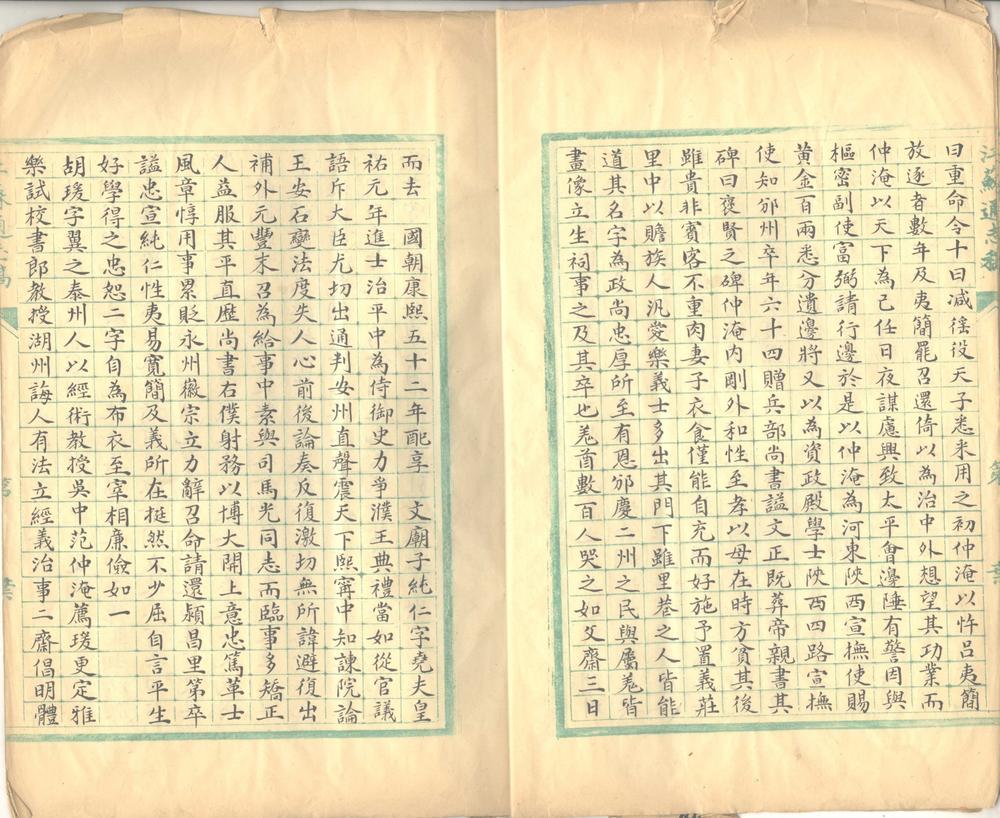 江蘇通志稿
曰重命令十曰減徭役天子悉采用之初仲淹以忤呂夷簡
放逐者數年及夷簡罷召還倚以為治中外想望其功業而
仲淹以天下為己任日夜謀慮興致太平會邊陲有警因與
樞密副使富弼請行邊於是以仲淹為河東陝西宣撫使賜
黃金百兩悉分遺邊將又以為資政殿學士陝西四路宣撫
使知邠州卒年六十四贈兵部尚書謚文正既葬帝親書其
碑曰褒賢之碑仲淹內剛外和性至孝以母在時方貧其後
雖貴非賓客不重肉妻子衣食僅能自充而好施予置義莊
里中以贍族人汎愛樂義士多出其門下雖里巷之人皆能
道其名字為政尚忠厚所至有恩邠慶二州之民與屬羌皆
畫像立生祠事之及其卒也羌酋數百人哭之如父齋三日
而去 國朝康熙五十二年配享 文廟子純仁字堯夫皇
祐元年進士治平中為侍御史力爭濮王典禮當如從官議
語斥大臣尤切出通判安州直聲震天下熙甯中知諫院論
王安石變法度失人心前後論奏反復激切無所諱避復出
補外元豐末召為給事中素與司馬光同志而臨事多矯正
人益服其平直歷尚書右僕射務以博大開上意忠篤革士
風章惇用事累貶永州徽宗立力辭召命請還潁昌里第卒
謚忠宣純仁性夷易寬簡及義所在挺然不少屈自言平生
好學得之忠恕二字自為布衣至宰相廉儉如一
胡瑗字翼之泰州人以經術教授吳中范仲淹薦瑗更定雅
樂試校書郎教授湖州誨人有法立經義治事二齋倡明體